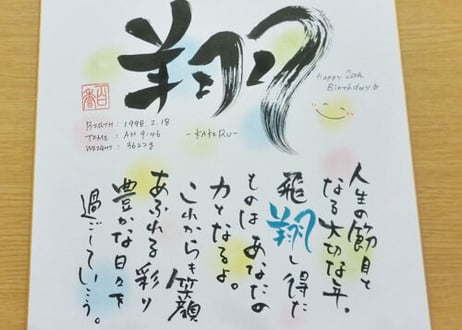 翔
Happy 20th
Birthday
BIRTH : 1998. 2. 18
TIME : AM 9:46
WEIGHT : 3622g
-KAKERU-
人生の節目と
なる大切な年。
飛翔し得た
ものはあなたの
力となるよ。
これからも笑顔
あふれる彩り
豊かな日々を
過ごしていこう。